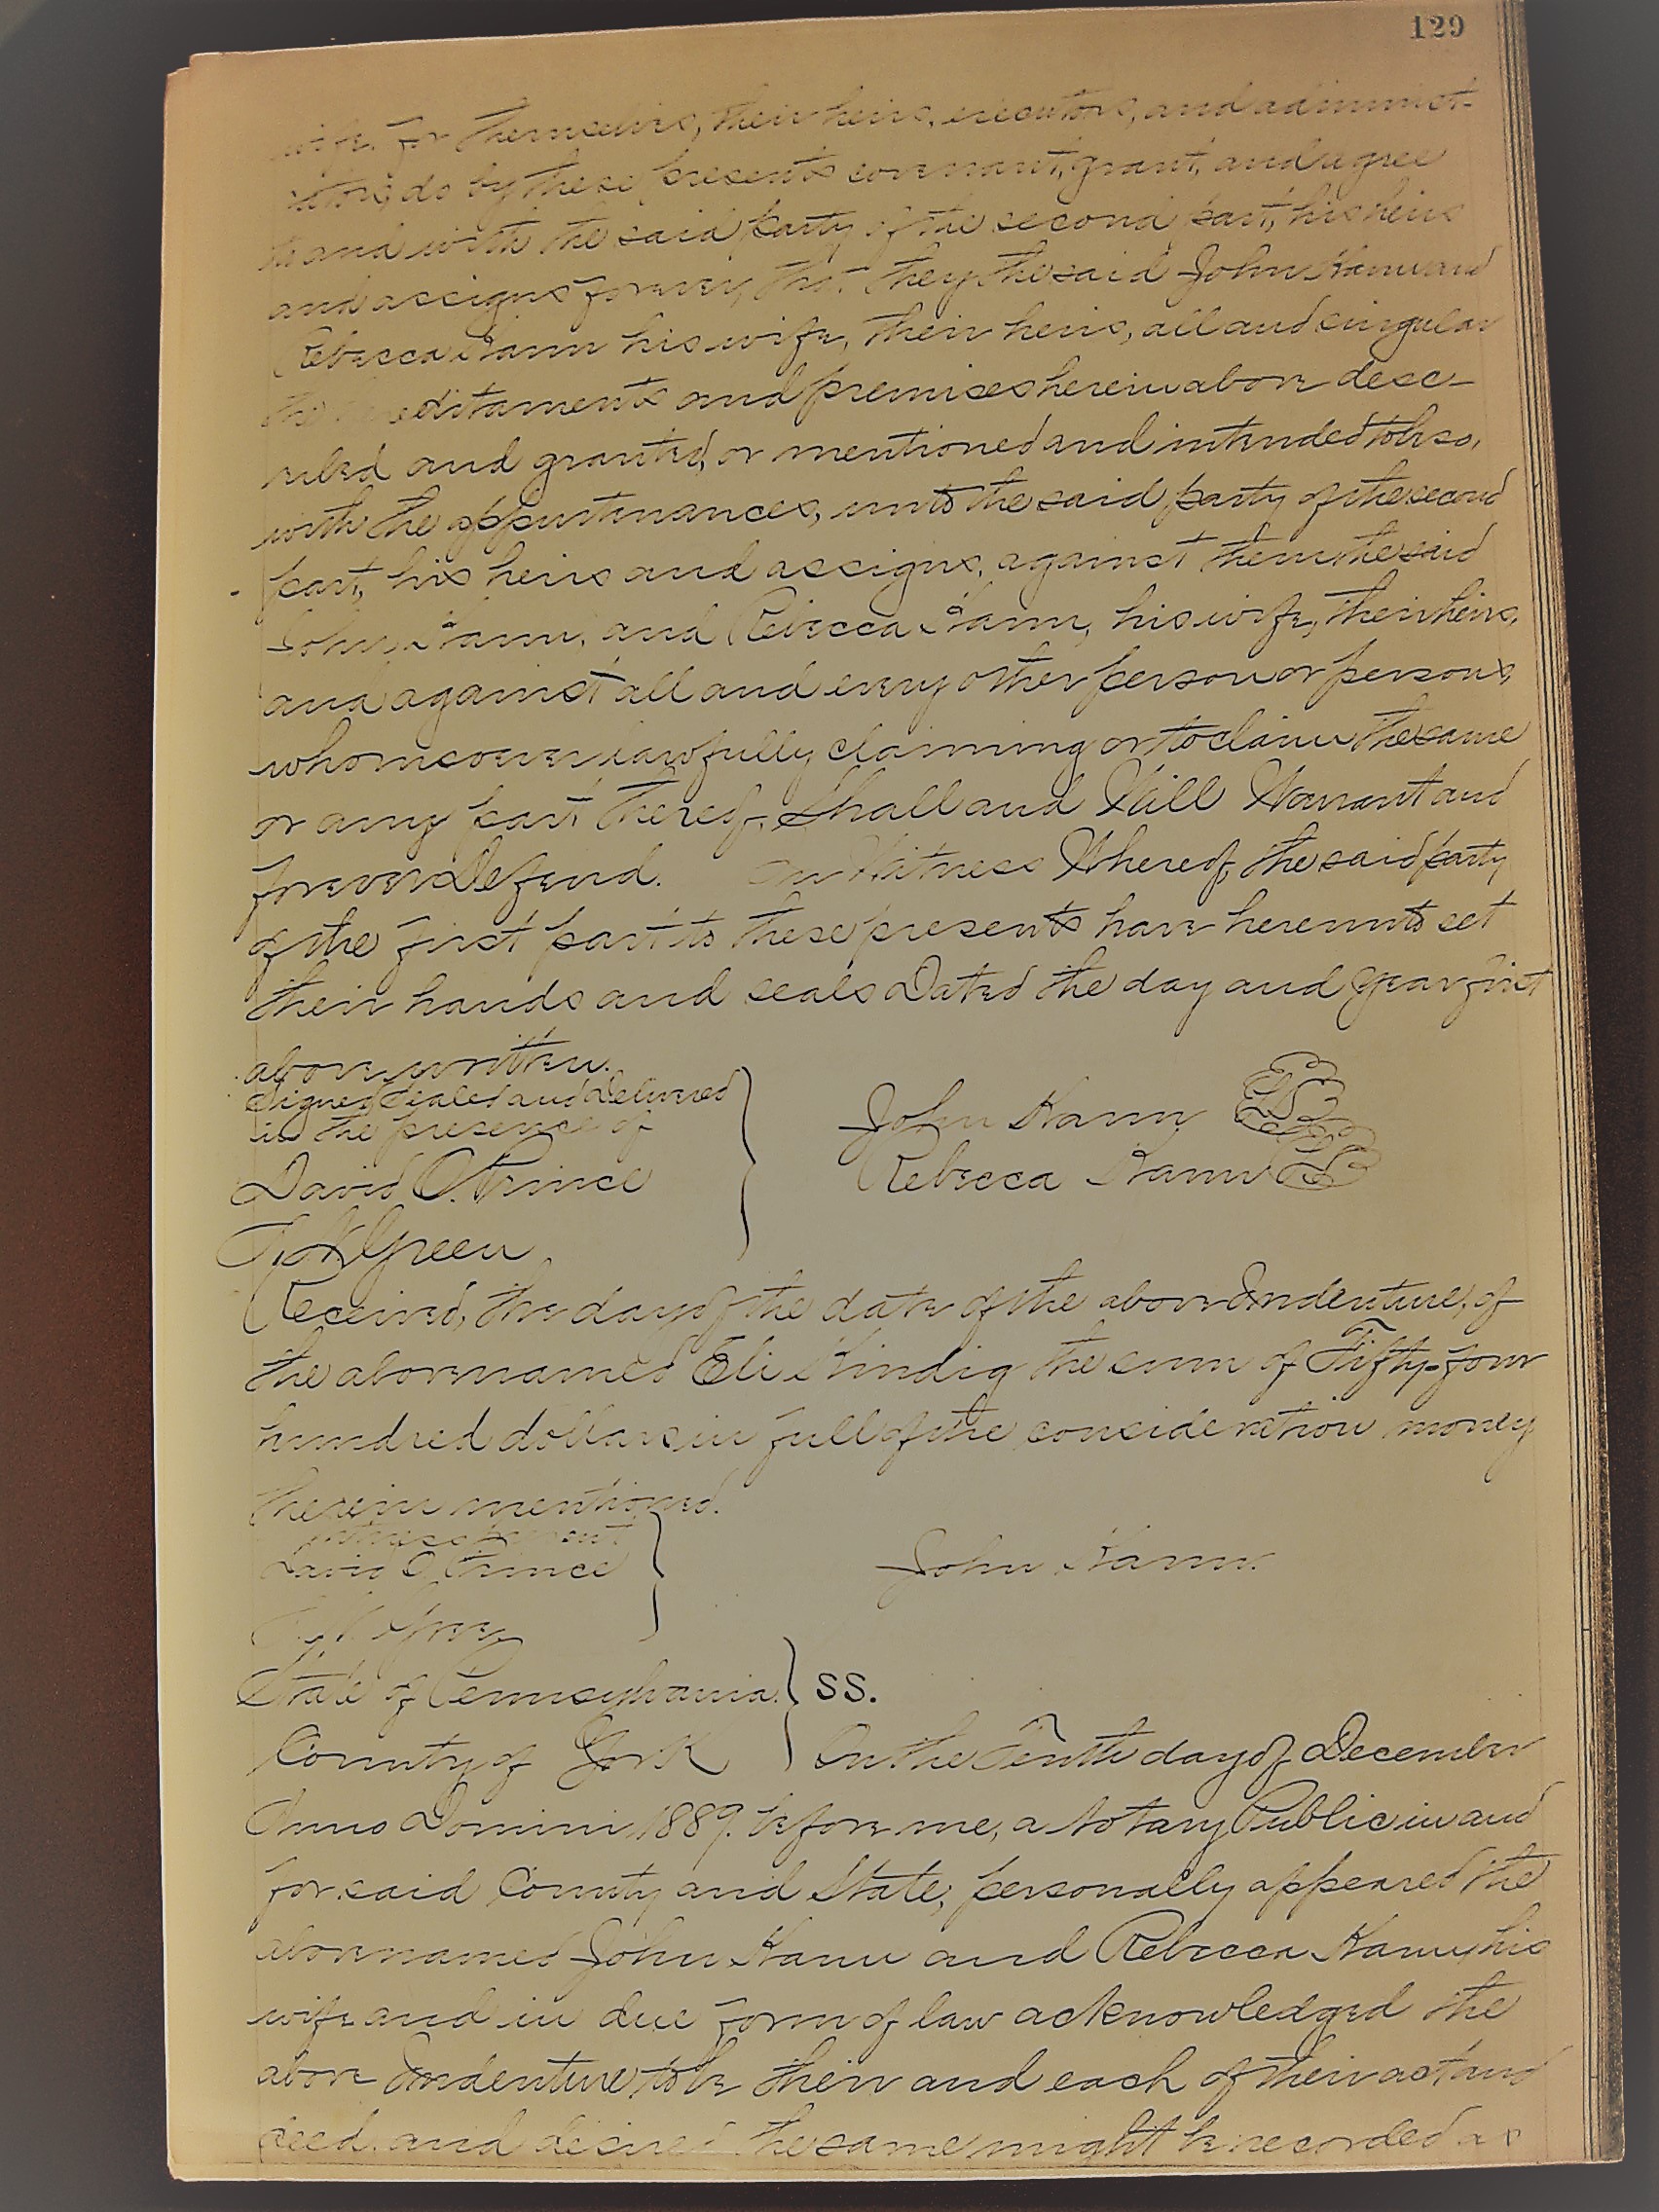 129
wife, for themselves, their heirs, executors, and administ-
rators, do by these presents covenant, grant, and agree
to and with the said party of the second part, his heirs
and assigns forever, that they the said John Kann and
Rebecca Kann his wife, their heirs, all and singular
the hereditaments and premises herein above desc-
ribed and granted, or mentioned and intended to be so,
with the appurtenances, unto the said party of the second
part, his heirs and assigns, against them the said
John Kann, and Rebecca Kann, his wife, their heirs,
and against all and every other person or persons,
whomsoever lawfully claiming or to claim the same
or any part thereof, Shall and Will Warrant and
forever Defend. In Witness Whereof, the said party
of the first part to these presents have hereunto set
their hands and seals Dated the day and year first
above written.
Signed Sealed and Delivered
in the presence of
John Kann LS
David O. Prince
Rebecca Kann LS
Green
Received, the day of the date of the above Indenture, of
the above named Eli Kindig the sum of Fifty-four
hundred dollars in full of the consideration money
therein mentioned.
witness present
David O Prince
John Kann.
State of Pennsylvania } SS.
County of York } On the Tenth day of December
Anno Domini 1889. before me, a Notary Public in and
for said County and State, personally appeared the
above named John Kann and Rebecca Kann, his
wife and in due form of law acknowledged the
above Indenture to be their and each of their act and
deed. and desired the same might be recorded as